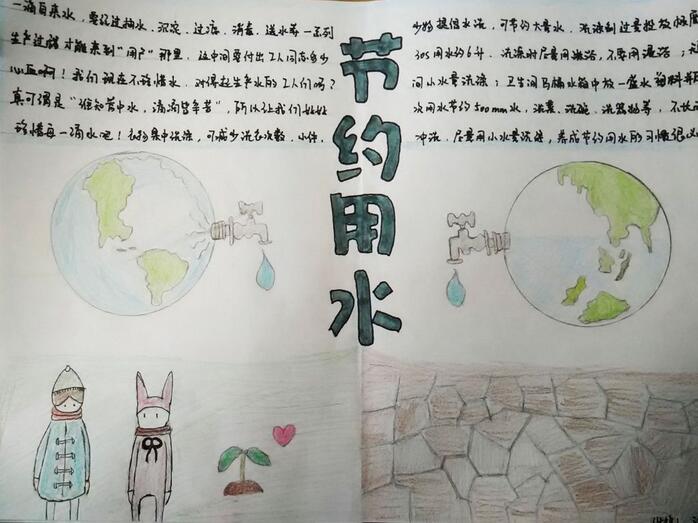 一滴自来水，要经过抽水、沉淀、过滤、消毒、送水等一系列
生产过程才能来到“用户”那里，这中间要付出工人同志多少
心血啊！我们现在不珍惜水，对得起生产水的工人们吗？
真可谓是“谁知杯中水，滴滴皆辛苦”，所以让我们
珍惜每一滴水吧！衣物集中洗涤，可减少洗衣次数，小件、
少的提倡水洗，可节约大量水，洗涤剂过量投放
30s用水约6升，洗涤时尽量用淋浴，不要用盆浴；
间小水量洗涤；卫生间马桶水箱中放一盛水塑料
次用水节约500mm水，洗菜、洗碗、洗器物等，不
冲洗，尽量用小水量洗涤，养成节约用水的习惯很
节约用水